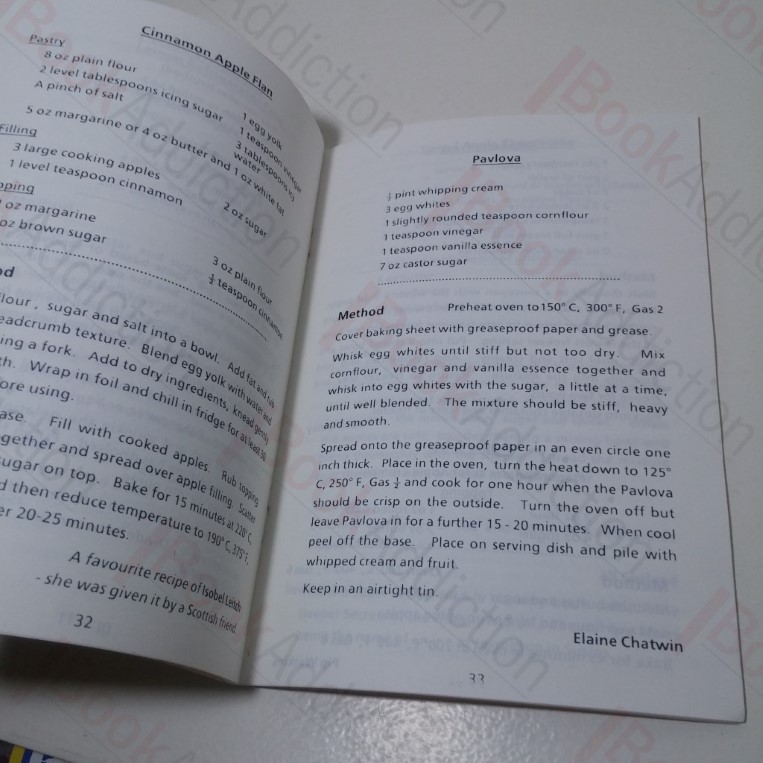 Cinnamon Apple Flan
Pastry
8 oz plain flour
2 level tablespoons icing sugar
A pinch of salt
5 oz margarine or 4 oz butter and 1 oz white fat
1 egg yolk
1 teaspoon vinegar
3 tablespoons icy
water
Filling
3 large cooking apples
1 level teaspoon cinnamon
2 oz sugar
pping
oz margarine
oz brown sugar
3 oz plain flour
½ teaspoon cinnamon
d
lour, sugar and salt into a bowl. Add fat and rub
eadcrumb texture. Blend egg yolk with water and
ing a fork. Add to dry ingredients, knead gently
th. Wrap in foil and chill in fridge for at least 30
ore using.
ase. Fill with cooked apples. Rub topping
gether and spread over apple filling. Scatter
ugar on top. Bake for 15 minutes at 220° C,
d then reduce temperature to 190° C, 375° F,
er 20-25 minutes.
A favourite recipe of Isobel
- she was given it by a Scottish friend.
32
Pavlova
½ pint whipping cream
3 egg whites
1 slightly rounded teaspoon cornflour
1 teaspoon vinegar
1 teaspoon vanilla essence
7 oz castor sugar
Method Preheat oven to 150° C, 300° F, Gas 2
Cover baking sheet with greaseproof paper and grease.
Whisk egg whites until stiff but not too dry. Mix
cornflour, vinegar and vanilla essence together and
whisk into egg whites with the sugar, a little at a time,
until well blended. The mixture should be stiff, heavy
and smooth.
Spread onto the greaseproof paper in an even circle one
inch thick. Place in the oven, turn the heat down to 125°
C, 250° F, Gas ½ and cook for one hour when the Pavlova
should be crisp on the outside. Turn the oven off but
leave Pavlova in for a further 15 - 20 minutes. When cool
peel off the base. Place on serving dish and pile with
whipped cream and fruit.
Keep in an airtight tin.
Elaine Chatwin
33
BookAddiction